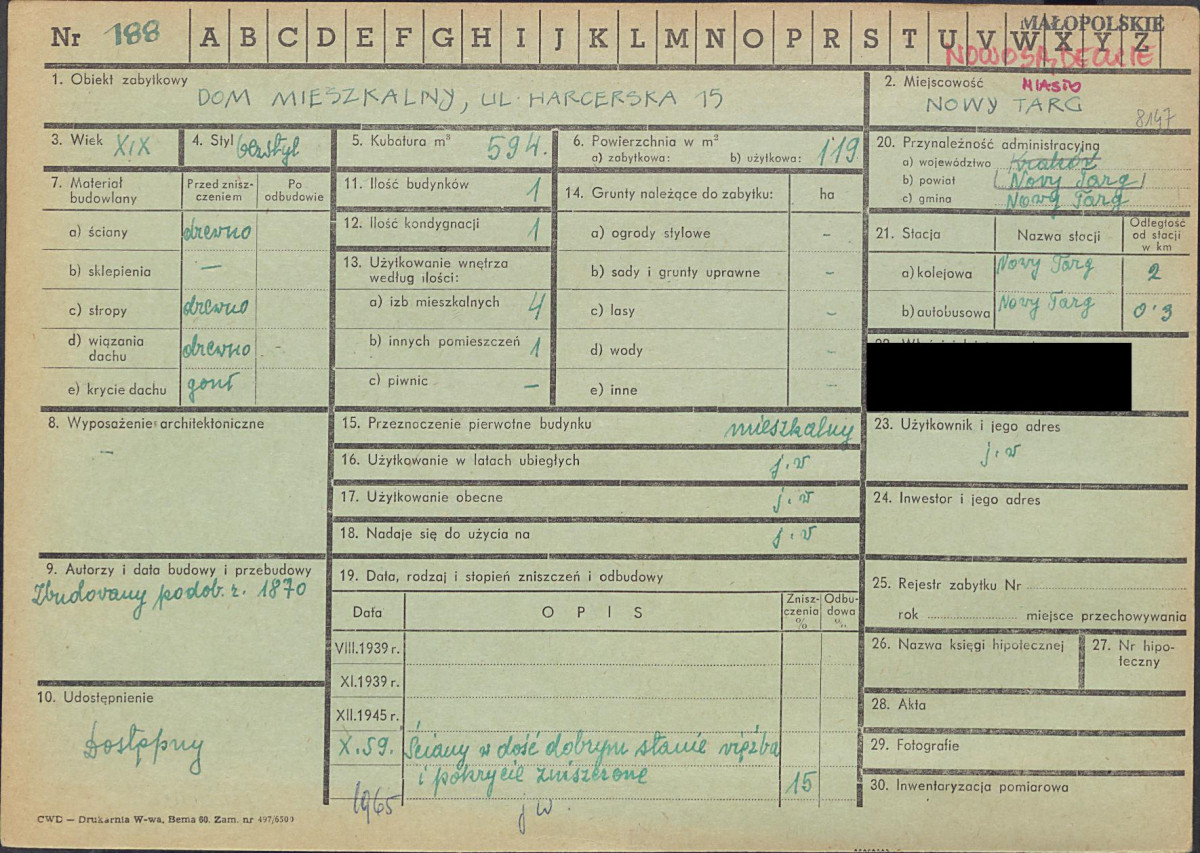 Nr 188 A B C D E F G H I J K L M N O P R S T U V W X Y Z
MAŁOPOLSKIE
NOWOSĄDECKIE
1. Obiekt zabytkowy
DOM MIESZKALNY, UL. HARCERSKA 15
2. Miejscowość MIASTO
NOWY TARG
8147
3. Wiek XIX
4. Styl bezstyl
5. Kubatura m³ 594.
6. Powierzchnia w m²
a) zabytkowa: b) użytkowa: 119
20. Przynależność administracyjną
a) województwo Kraków
b) powiat (Nowy Targ)
c) gmina Nowy Targ
7. Materiał budowlany
Przed zniszczeniem
Po odbudowie
a) ściany drewno
b) sklepienia —
c) stropy drewno
d) wiązania dachu drewno
e) krycie dachu gont
11. Ilość budynków 1
12. Ilość kondygnacji 1
13. Użytkowanie wnętrza
według ilości:
a) izb mieszkalnych 4
b) innych pomieszczeń 1
c) piwnic —
14. Grunty należące do zabytku: ha
a) ogrody stylowe -
b) sady i grunty uprawne -
c) lasy -
d) wody -
e) inne -
21. Stacja Nazwa stacji Odległość od stacji w km
a) kolejowa Nowy Targ 2
b) autobusowa Nowy Targ 0·3
8. Wyposażenie architektoniczne
—
15. Przeznaczenie pierwotne budynku mieszkalny
16. Użytkowanie w latach ubiegłych j.w
17. Użytkowanie obecne j.w
18. Nadaje się do użycia na j.w
23. Użytkownik i jego adres
j.w
24. Inwestor i jego adres
9. Autorzy i data budowy i przebudowy
Zbudowany podob. r. 1870
19. Data, rodzaj i stopień zniszczeń i odbudowy
Data OPIS Zniszczenia % Odbudowa %
VIII.1939 r.
XI.1939 r.
XII.1945 r.
X.59. Ściany w dość dobrym stanie więźba
i pokrycie zniszczone 15
1965 j w.
25. Rejestr zabytku Nr
rok miejsce przechowywania
26. Nazwa księgi hipotecznej
27. Nr hipoteczny
10. Udostępnienie
Dostępny
28. Akta
29. Fotografie
30. Inwentaryzacja pomiarowa
CWD — Drukarnia W-wa, Bema 60. Zam. nr 497/6509